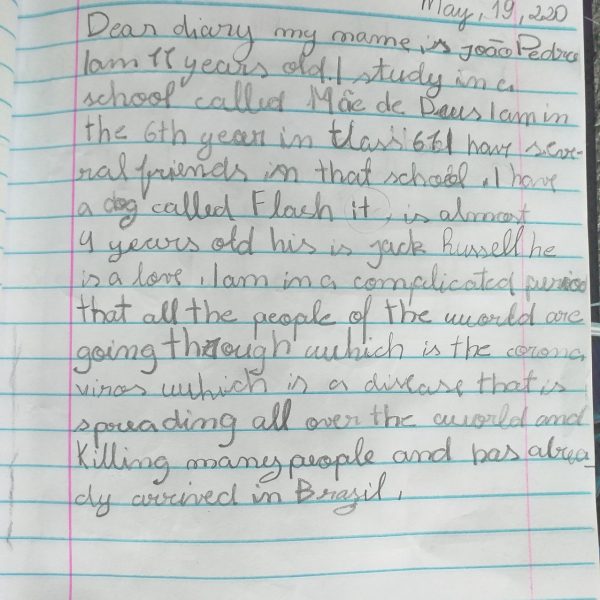 May, 19, 220
Dear diary my name, is João Pedro
I am 11 years old. I study in a
school called Mãe de Deus I am in
the 6th year in class 611 have seve-
ral friends in that school. I have
a dog called Flach it, is almost
4 years old his is jack Russell he
is a love. I am in a complicated period
that all the people of the world are
going through which is the corona
viros which is a disease that is
spreading all over the world and
Killing many people and has alrea_
dy arrived in Brazil.